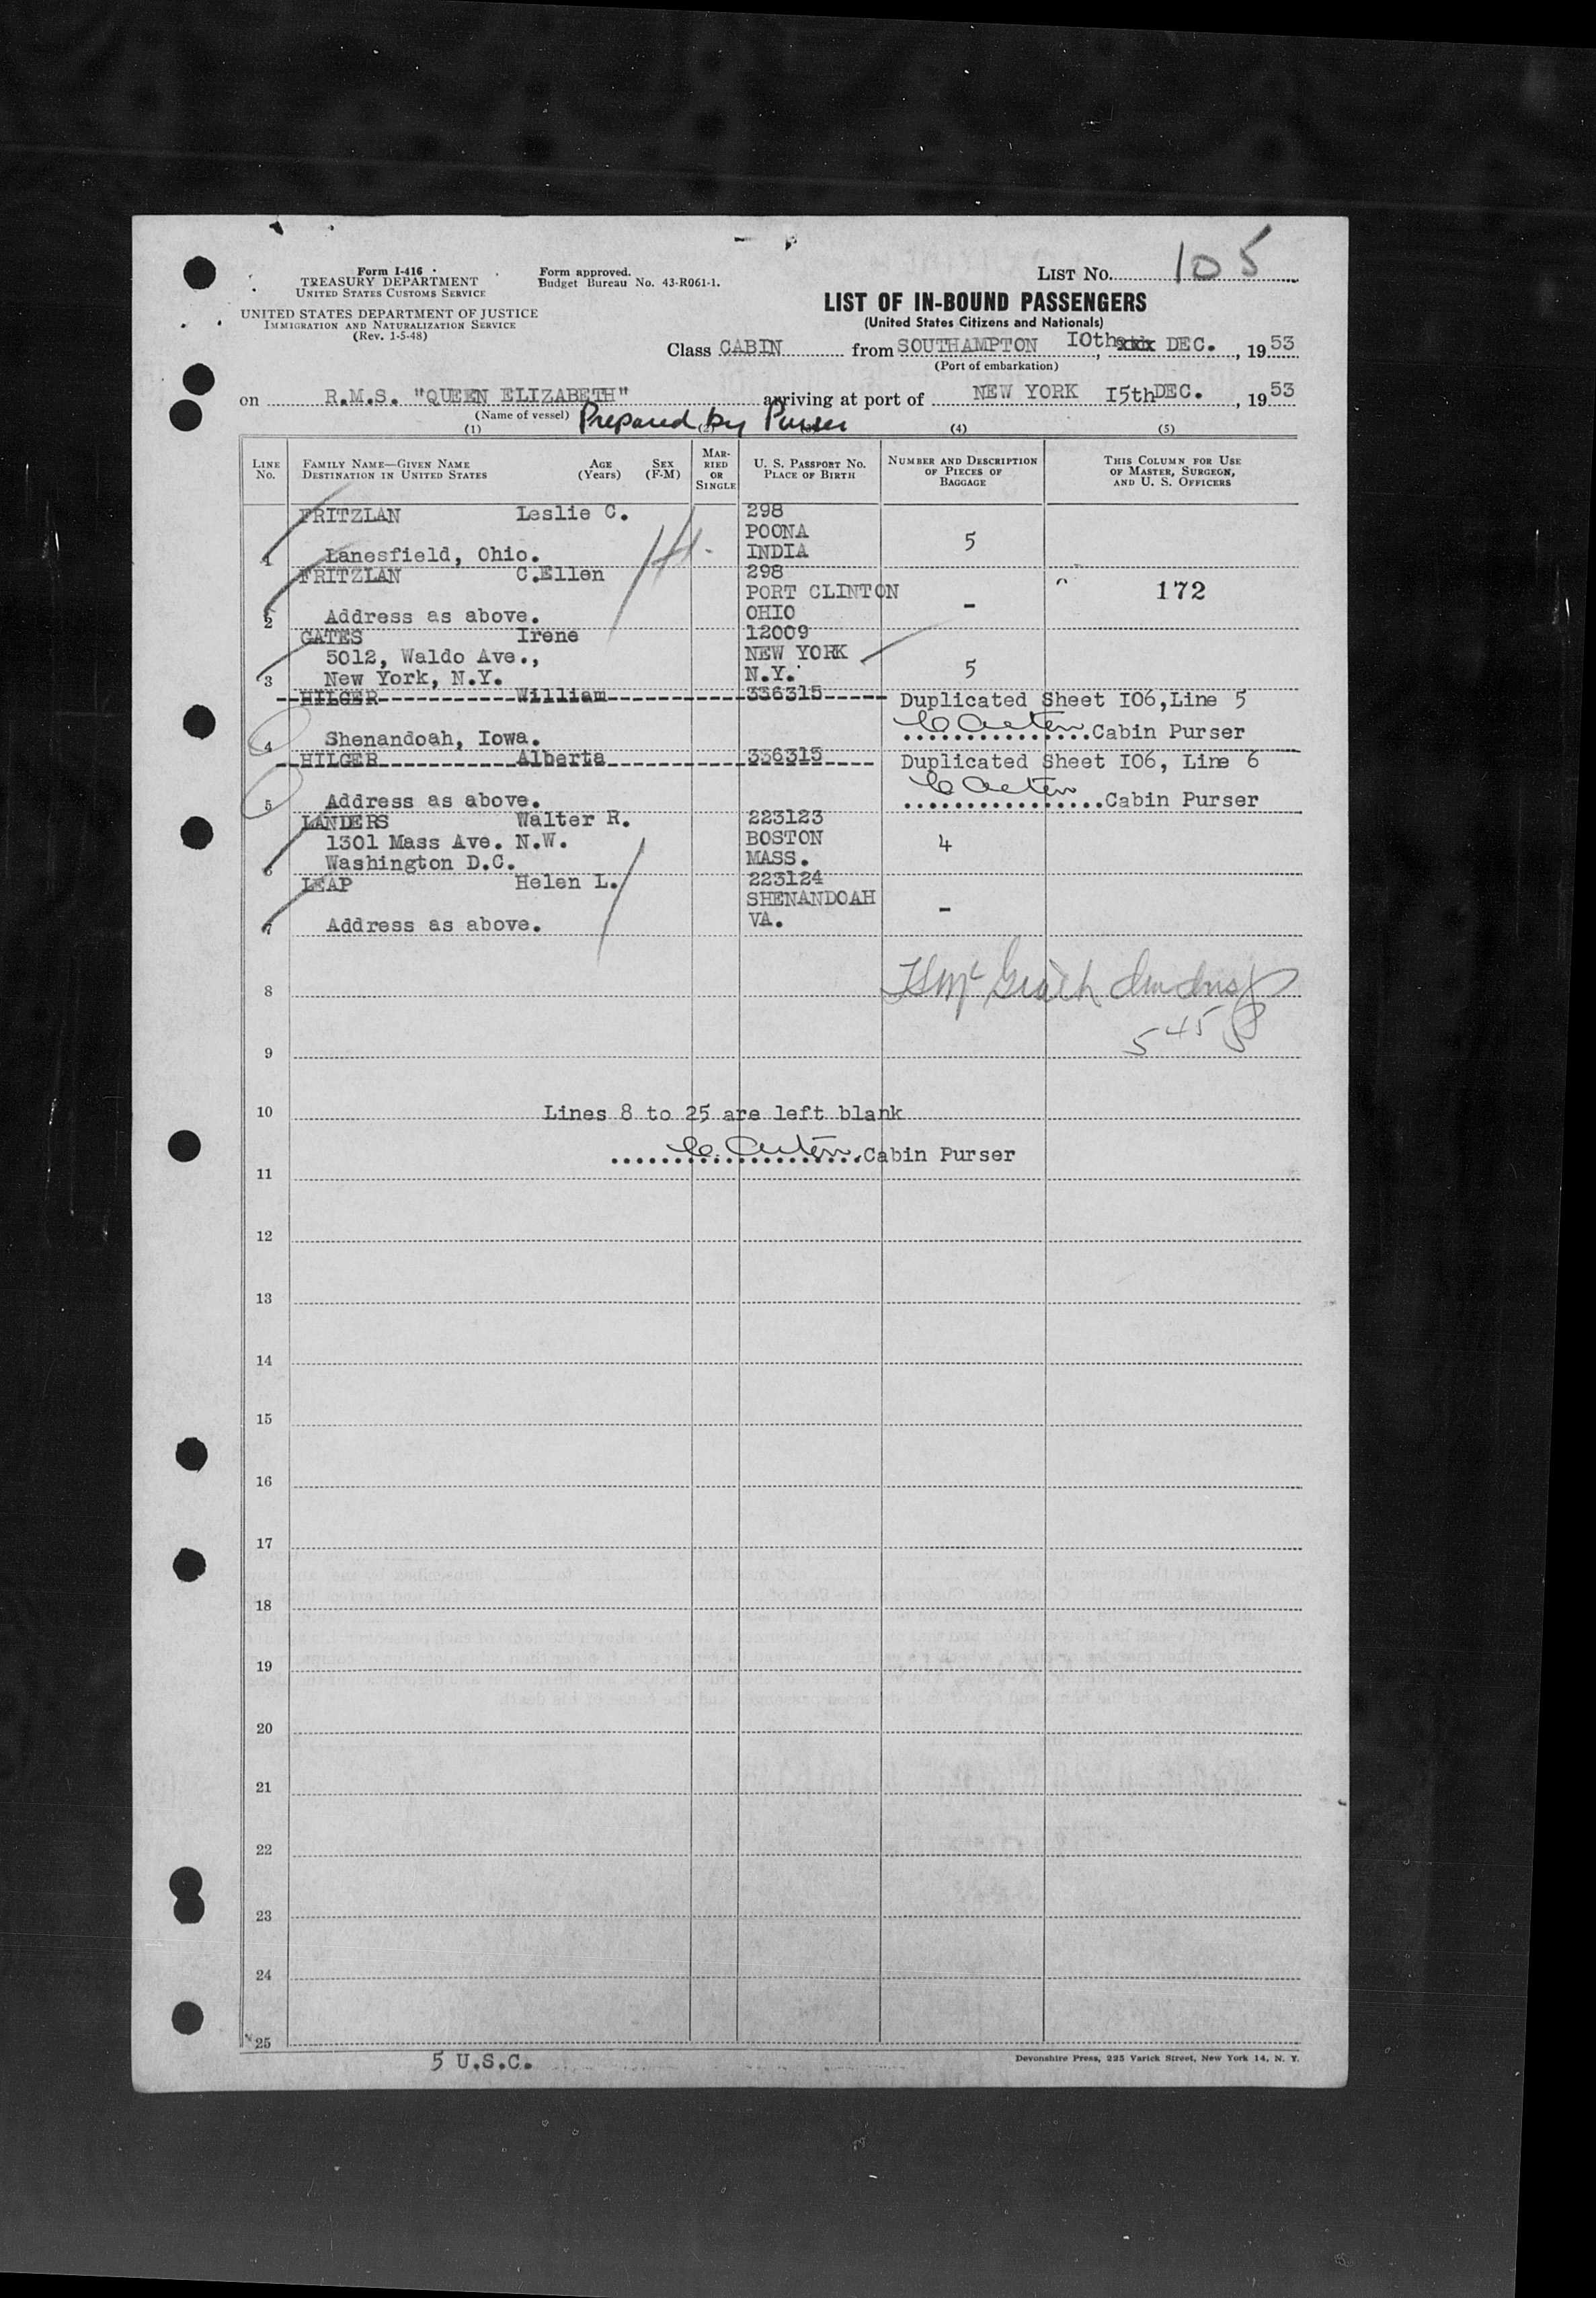 Form I-416
TREASURY DEPARTMENT
UNITED STATES CUSTOMS SERVICE
UNITED STATES DEPARTMENT OF JUSTICE
IMMIGRATION AND NATURALIZATION SERVICE
(Rev. 1-5-48)
Form approved.
Budget Bureau No. 43-R061-1.
LIST NO. 105
LIST OF IN-BOUND PASSENGERS
(United States Citizens and Nationals)
Class CABIN from SOUTHAMPTON I0th, xxx DEC., 1953
(Port of embarkation)
on R.M.S. "QUEEN ELIZABETH" arriving at port of NEW YORK I5th DEC., 1953
(Name of vessel) Prepared by Purser
(1) (2) (3) (4) (5)
LINE NO. FAMILY NAME—GIVEN NAME DESTINATION IN UNITED STATES AGE (Years) SEX (F-M) MARRIED OR SINGLE U. S. PASSPORT NO. PLACE OF BIRTH NUMBER AND DESCRIPTION OF PIECES OF BAGGAGE THIS COLUMN FOR USE OF MASTER, SURGEON, AND U. S. OFFICERS
FRITZLAN Leslie C. 298
POONA
1 Lanesfield, Ohio. INDIA 5
FRITZLAN C.Ellen 298
PORT CLINTON 172
2 Address as above. OHIO -
GATES Irene 12009
5012, Waldo Ave., NEW YORK
3 New York, N.Y. N.Y. 5
HILGER William 336315 Duplicated Sheet I06, Line 5
4 Shenandoah, Iowa. Cabin Purser
HILGER Alberta 336315 Duplicated Sheet I06, Line 6
5 Address as above. Cabin Purser
LANDERS Walter R. 223123
1301 Mass Ave. N.W. BOSTON 4
6 Washington D.C. MASS.
LEAP Helen L. 223124
SHENANDOAH
7 Address as above. VA. -
8
545
9
10 Lines 8 to 25 are left blank
Cabin Purser
11
12
13
14
15
16
17
18
19
20
21
22
23
24
25
5 U.S.C.
Devonshire Press, 225 Varick Street, New York 14, N. Y.